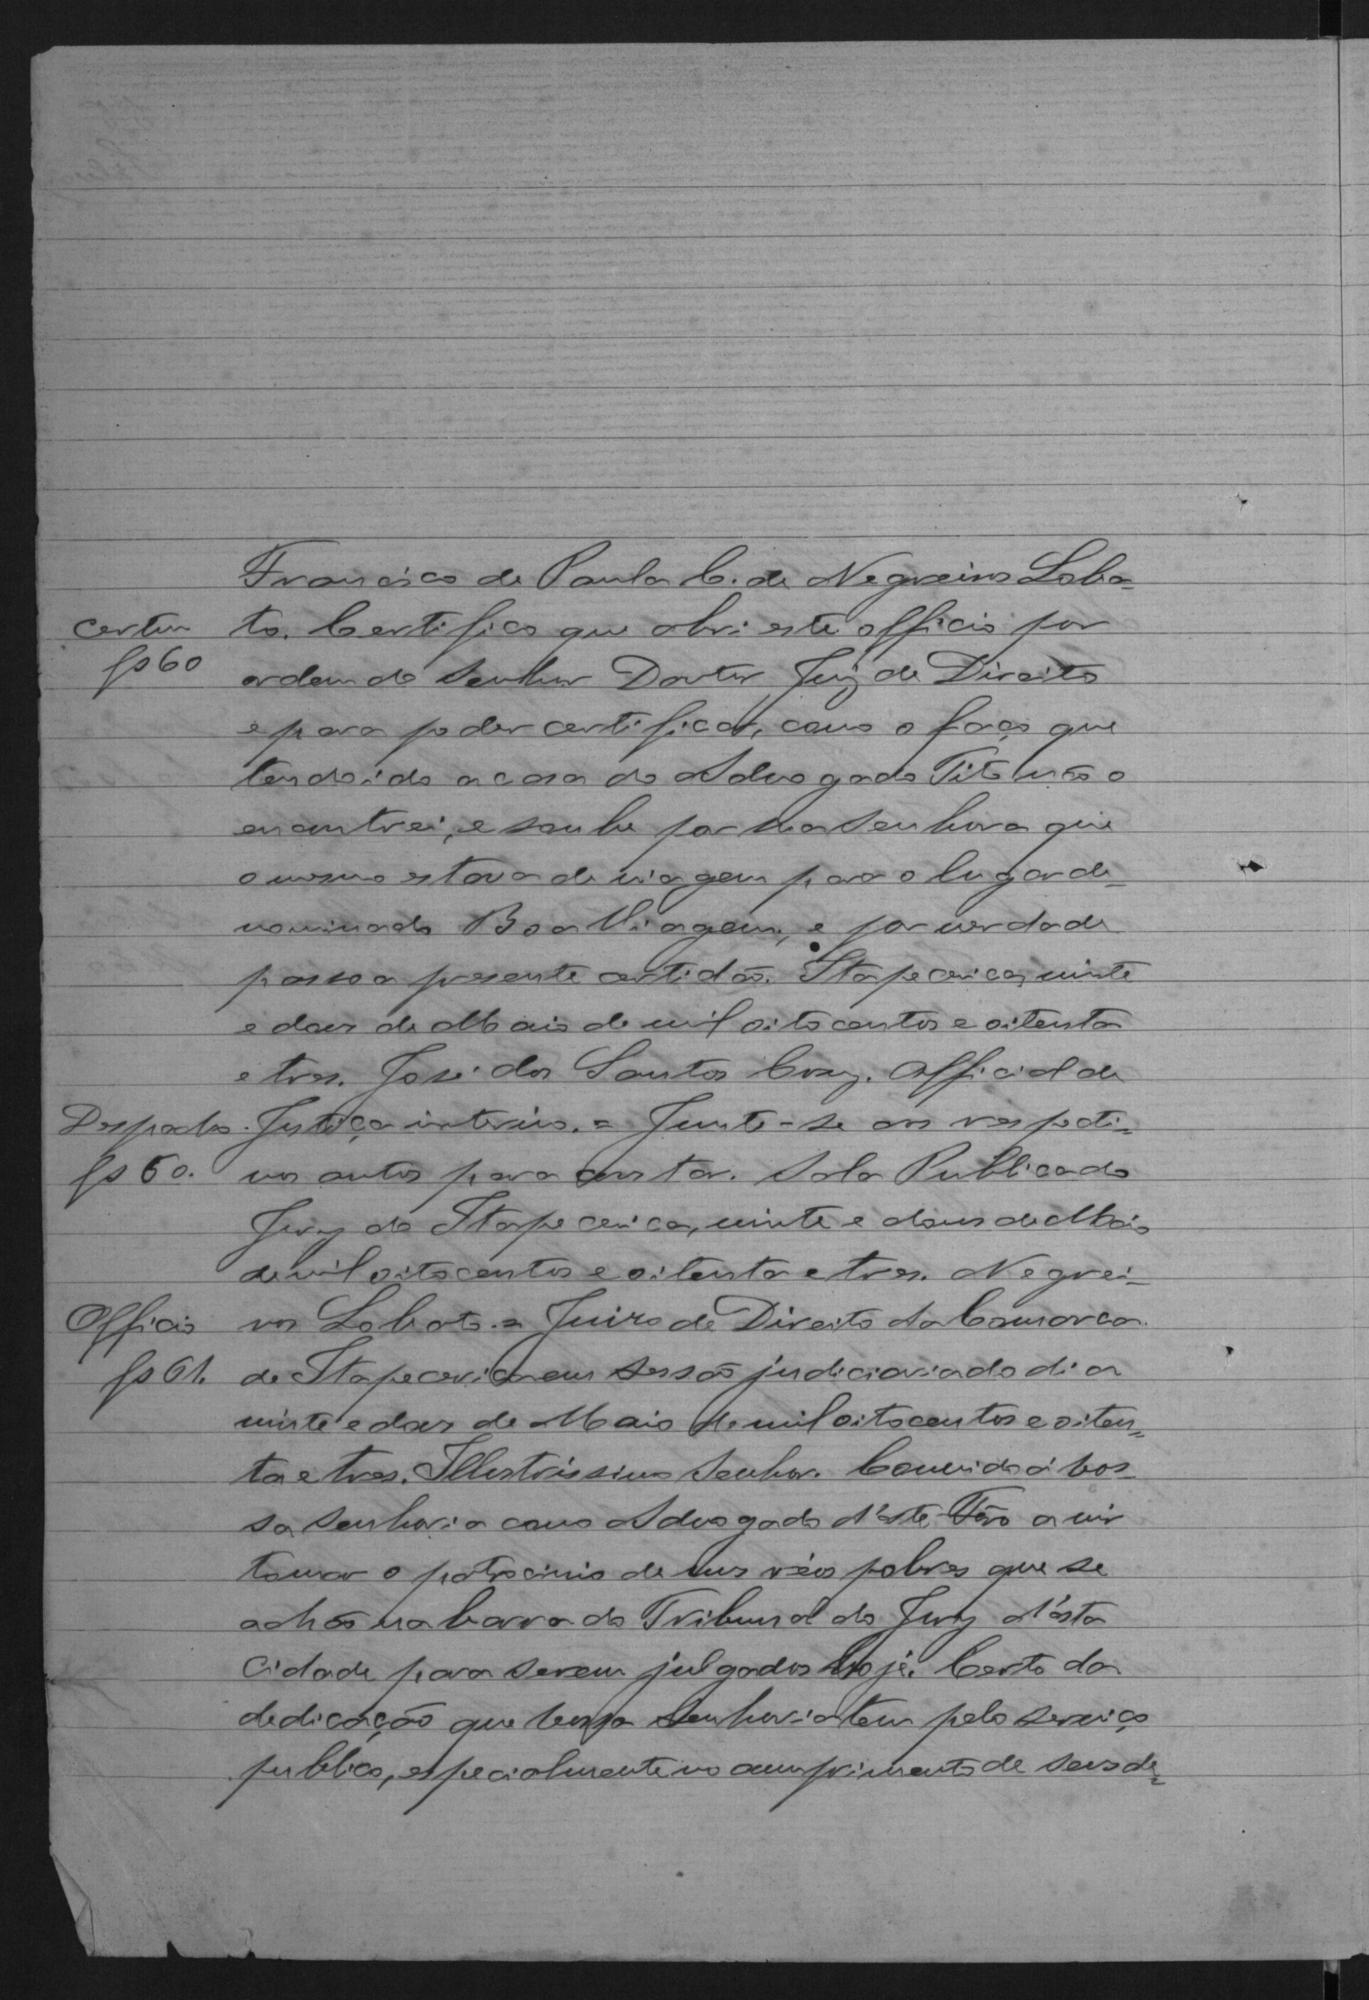 Francisco de Paula C. de Negreiros Loba-
certm
fs 60
to. Certifico que abri este officio por
ordem do Senhor Doutor Juiz de Direito
e para poder certificar, como o faço que
tendo ido a casa do Advogado Tito não o
encontrei, e soube por sua Senhora que
o mesmo estava de viagem para o lugar de-
nominado Boa Viagem, e por verdade
passo a presente certidão. Itapecerica, vinte
e dous de Maio de mil oitocentos e oitenta
e tres. José dos Santos Cruz. Official de
Despacho
fs 60.
Justiça interino. = Junte-se aos respecti-
vos autos para constar. Sala Publica do
Jury de Itapecerica, vinte e dous de Maio
de mil oitocentos e oitenta e tres. Negrei-
Officio
fs 61.
ros Lobato. = Juizo de Direito da Comarca
de Itapecerica em sessão judiciaria do dia
vinte e dous de Maio de mil oitocentos e oiten-
ta e tres. Illustrissimo Senhor. Convido á Vos-
sa Senhoria como Advogado d'este Fôro a vir
tomar o patrocinio de uns réos pobres que se
achão na barra do Tribunal do Jury d'esta
Cidade para serem julgados hoje. Certo da
dedicação que Vossa Senhoria tem pelo serviço
publico, especialmente no cumprimento de seus de-